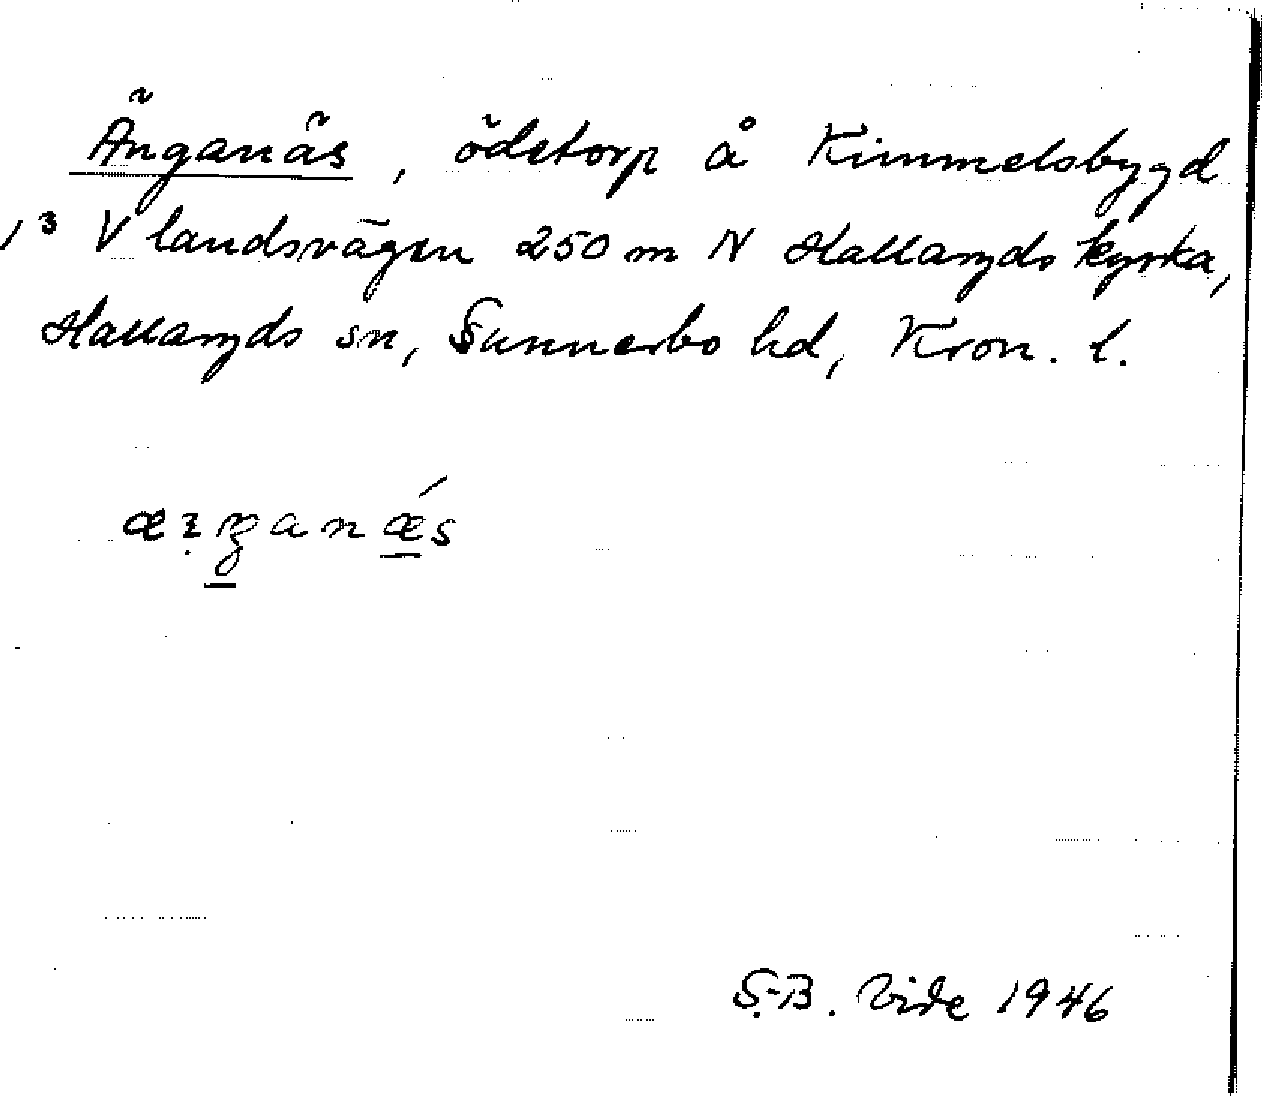 Änganäs, ödetorp å Kimmelsbygd
1³ V landsvägen 250 m N Hallaryds kyrka,
Hallaryds sn, Sunnerbo hd, Kron. l.
S.-B. Vide 1946